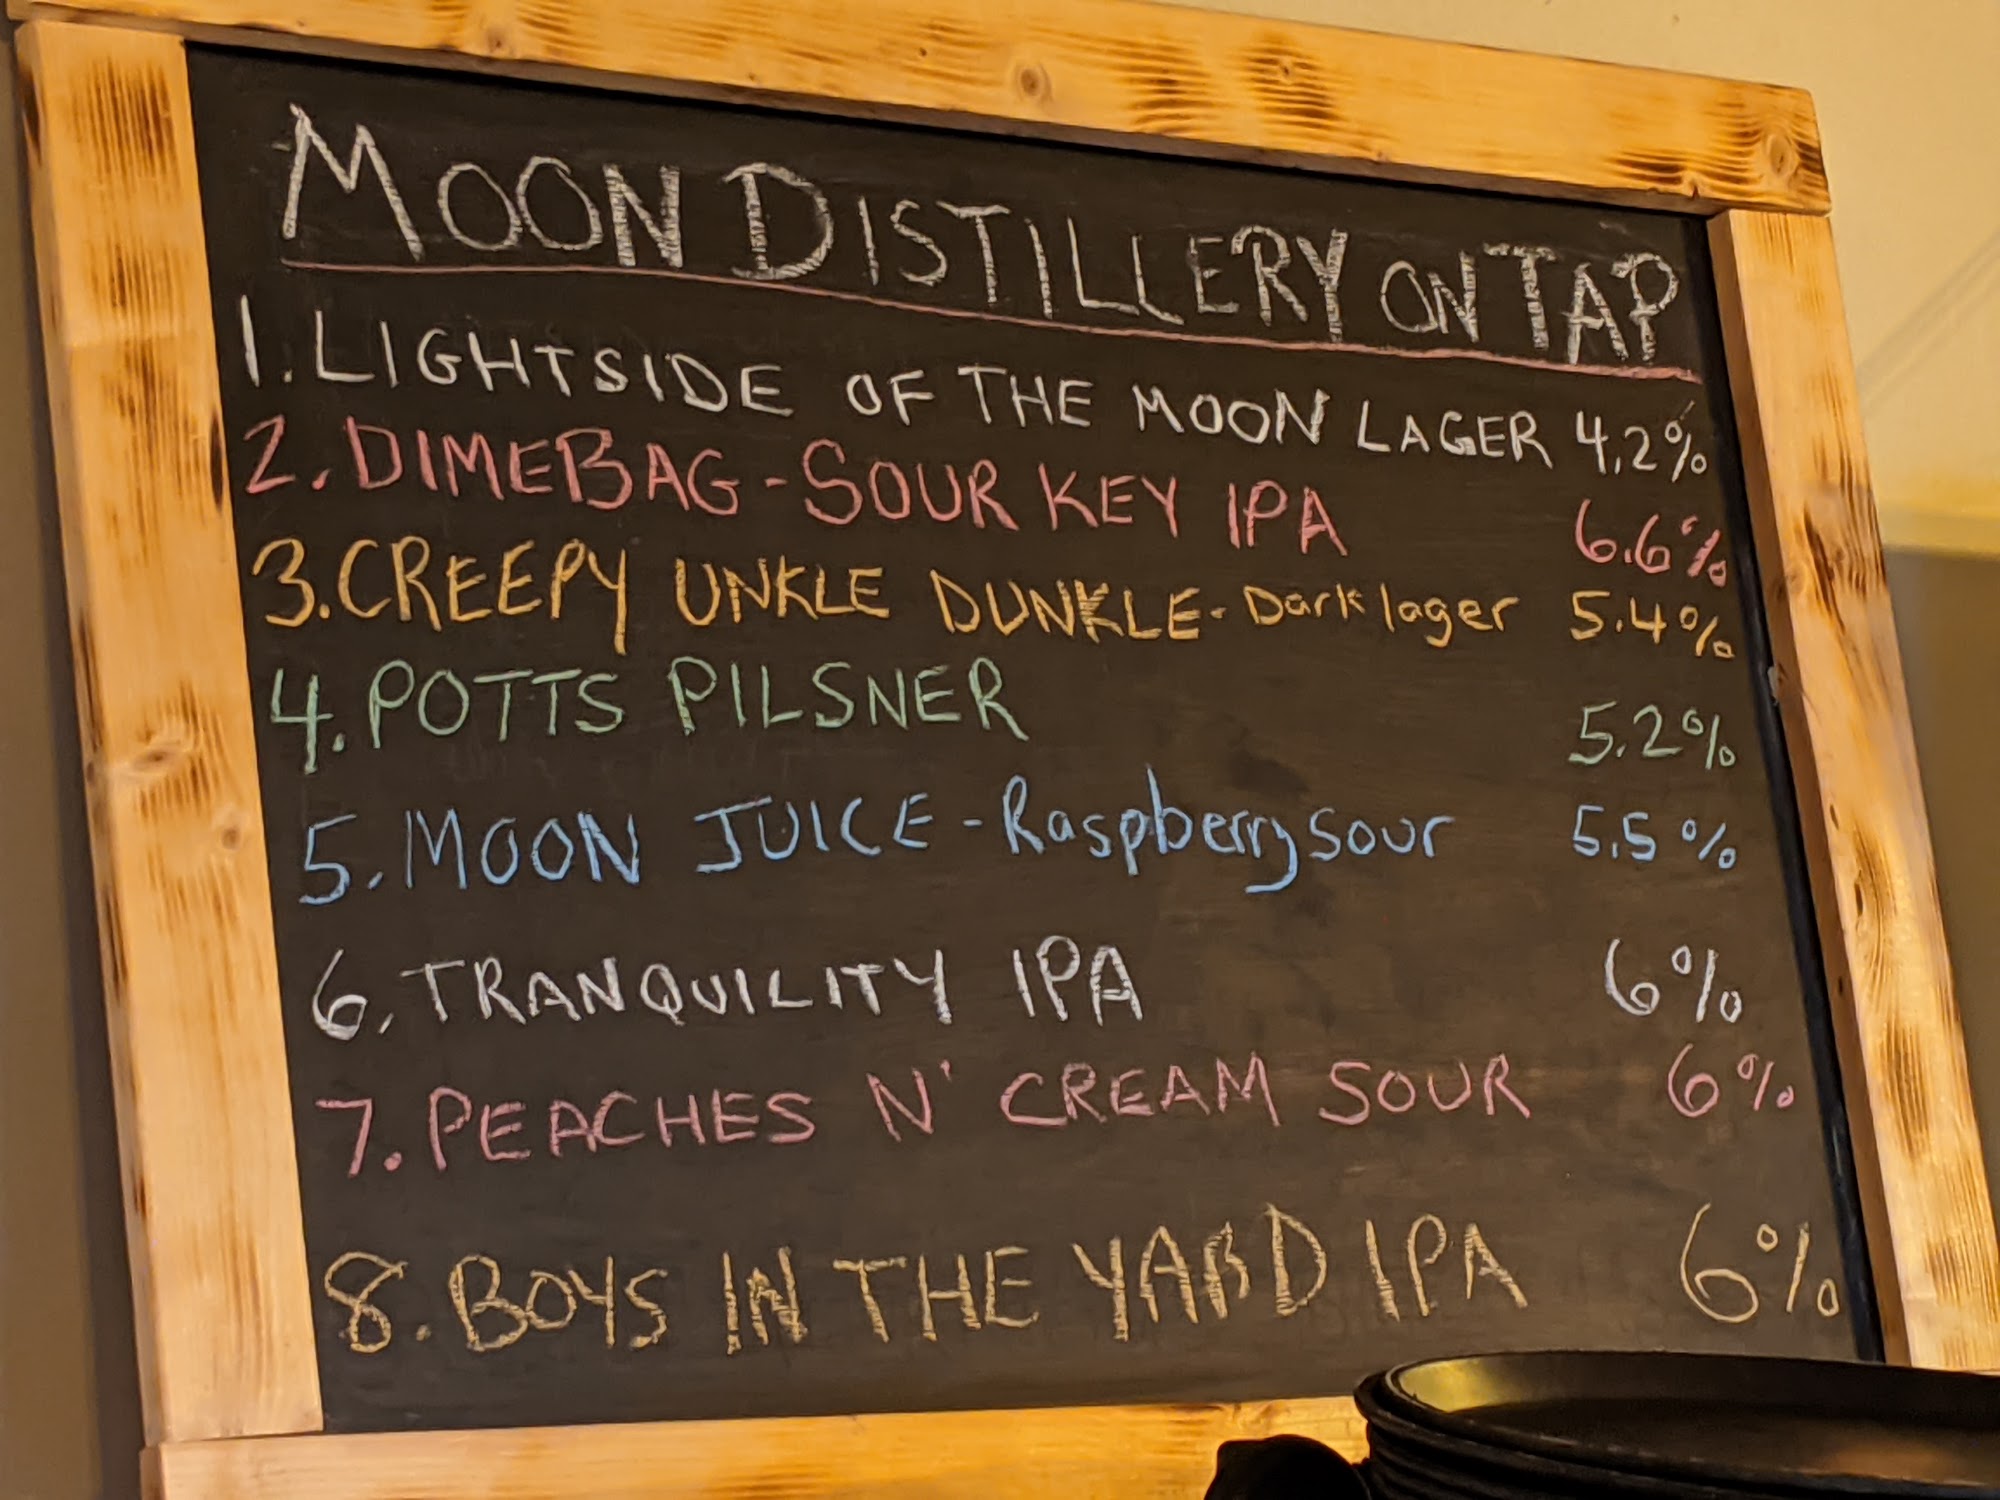 MOON DISTILLERY ON TAP
1. LIGHTSIDE OF THE MOON LAGER 4.2%
2. DIMEBAG - SOUR KEY IPA 6.6%
3. CREEPY UNKLE DUNKLE - Dark lager 5.4%
4. POTTS PILSNER 5.2%
5. MOON JUICE - Raspberry sour 5.5%
6. TRANQUILITY IPA 6%
7. PEACHES N' CREAM SOUR 6%
8. BOYS IN THE YARD IPA 6%